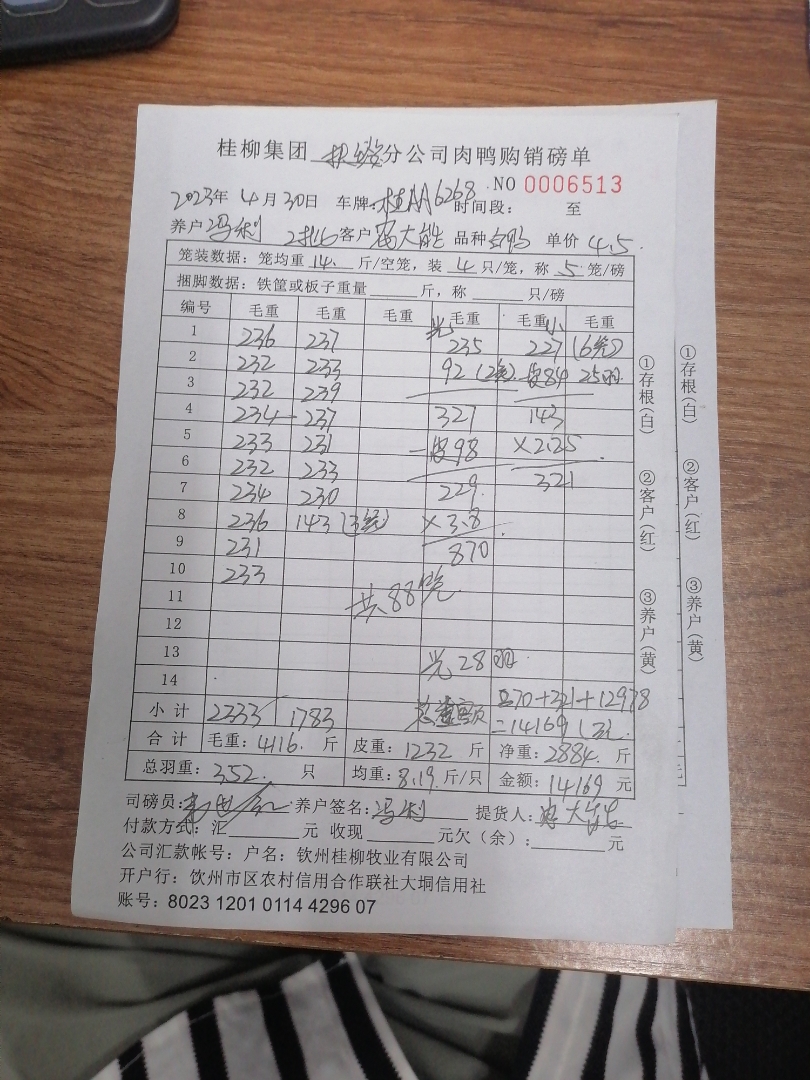 桂柳集团 分公司肉鸭购销磅单
NO 0006513
2023年 4月30日 车牌:桂AA6268 时间段: 至
养户 冯利 2批 客户 大能 品种 白鸭 单价 4.5
笼装数据:笼均重 14 斤/空笼,装 4 只/笼,称 5 笼/磅
捆脚数据:铁筐或板子重量 斤,称 只/磅
编号 毛重 毛重 毛重 毛重 毛重小 毛重
1 236 237 235 227 (6笼)
2 232 233 92 (2笼) -皮84 25羽
3 232 239
4 234 237 327 143
5 233 231 -皮98 ×2.25
6 232 233 321
7 234 230 229
8 236 143 (3笼) ×3.8
9 231 870
10 233
11 共88笼
12
13 光28羽
14 870+321+12978
小计 2333 1783 总金额 =14169
合计 毛重:4116 斤 皮重:1232 斤 净重:2884 斤
总羽重:352 只 均重:8.19 斤/只 金额:14169 元
司磅员: 养户签名:冯利 提货人: 大能
付款方式:汇 元 收现 元欠(余): 元
公司汇款帐号:户名:钦州桂柳牧业有限公司
开户行:饮州市区农村信用合作联社大垌信用社
账号:8023 1201 0114 4296 07
①存根(白) ②客户(红) ③养户(黄)
①存根(白) ②客户(红) ③养户(黄)
元